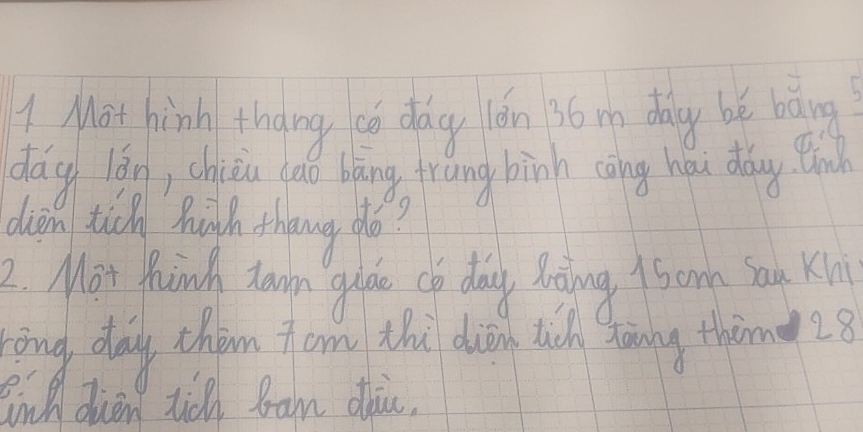 1 Một hình thang có đáy lớn 36 m đáy bé bằng 5
đáy lớn, chiều cao bằng trung bình cộng hai đáy. Tính
diện tích hình thang đó?
2. Một hình tam giác có đáy bằng 15cm sau khi
rộng đáy thêm 7 cm thì diện tích tăng thêm 28
Tính diện tích ban đầu.